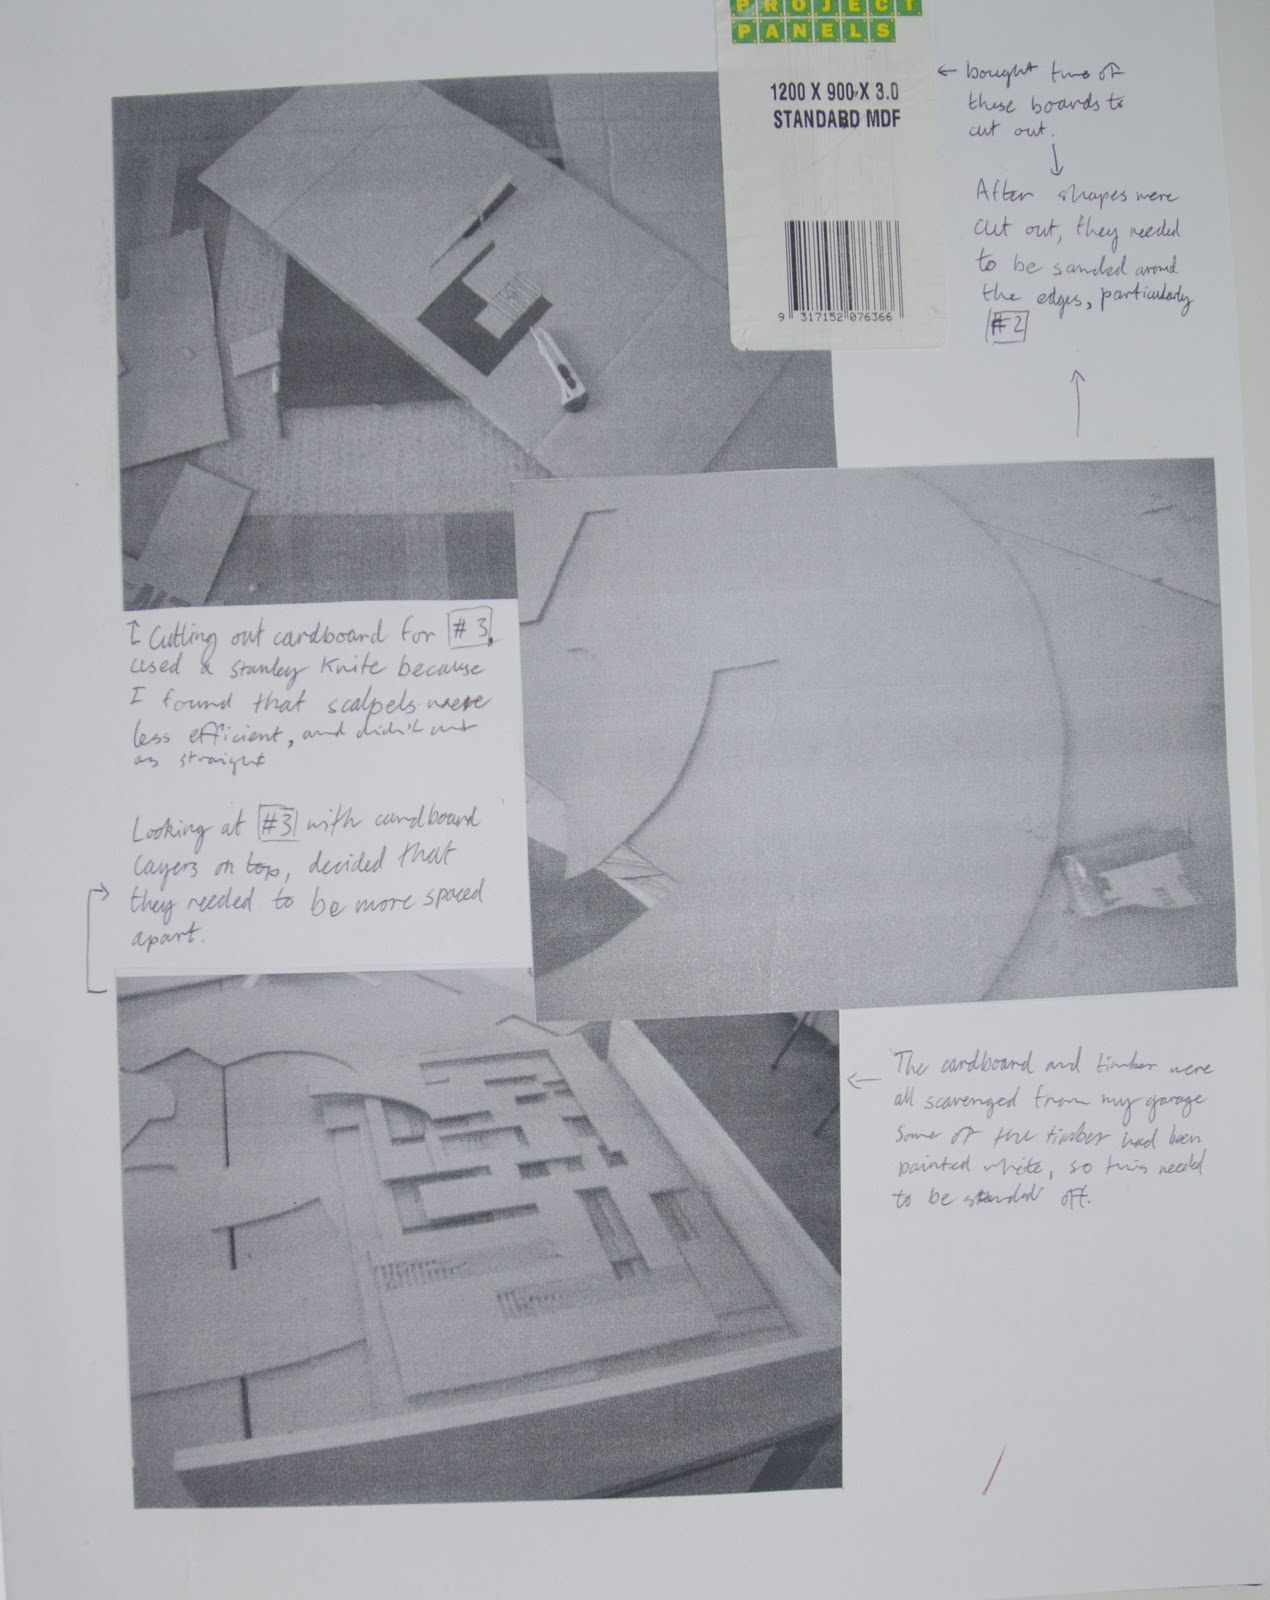 PROJECT
PANELS
1200 X 900 X 3.0
STANDARD MDF
9 317152 076366
← bought two of
these boards to
cut out.
↓
After shapes were
cut out, they needed
to be sanded around
the edges, particularly
#2
↑
↑ Cutting out cardboard for #3.
used a Stanley Knife because
I found that scalpels were
less efficient, and didn't cut
as straight
Looking at #3 with cardboard
layers on top, decided that
they needed to be more spaced
apart.
← The cardboard and timber were
all scavenged from my garage
Some of the timber had been
painted white, so this needed
to be sanded off.